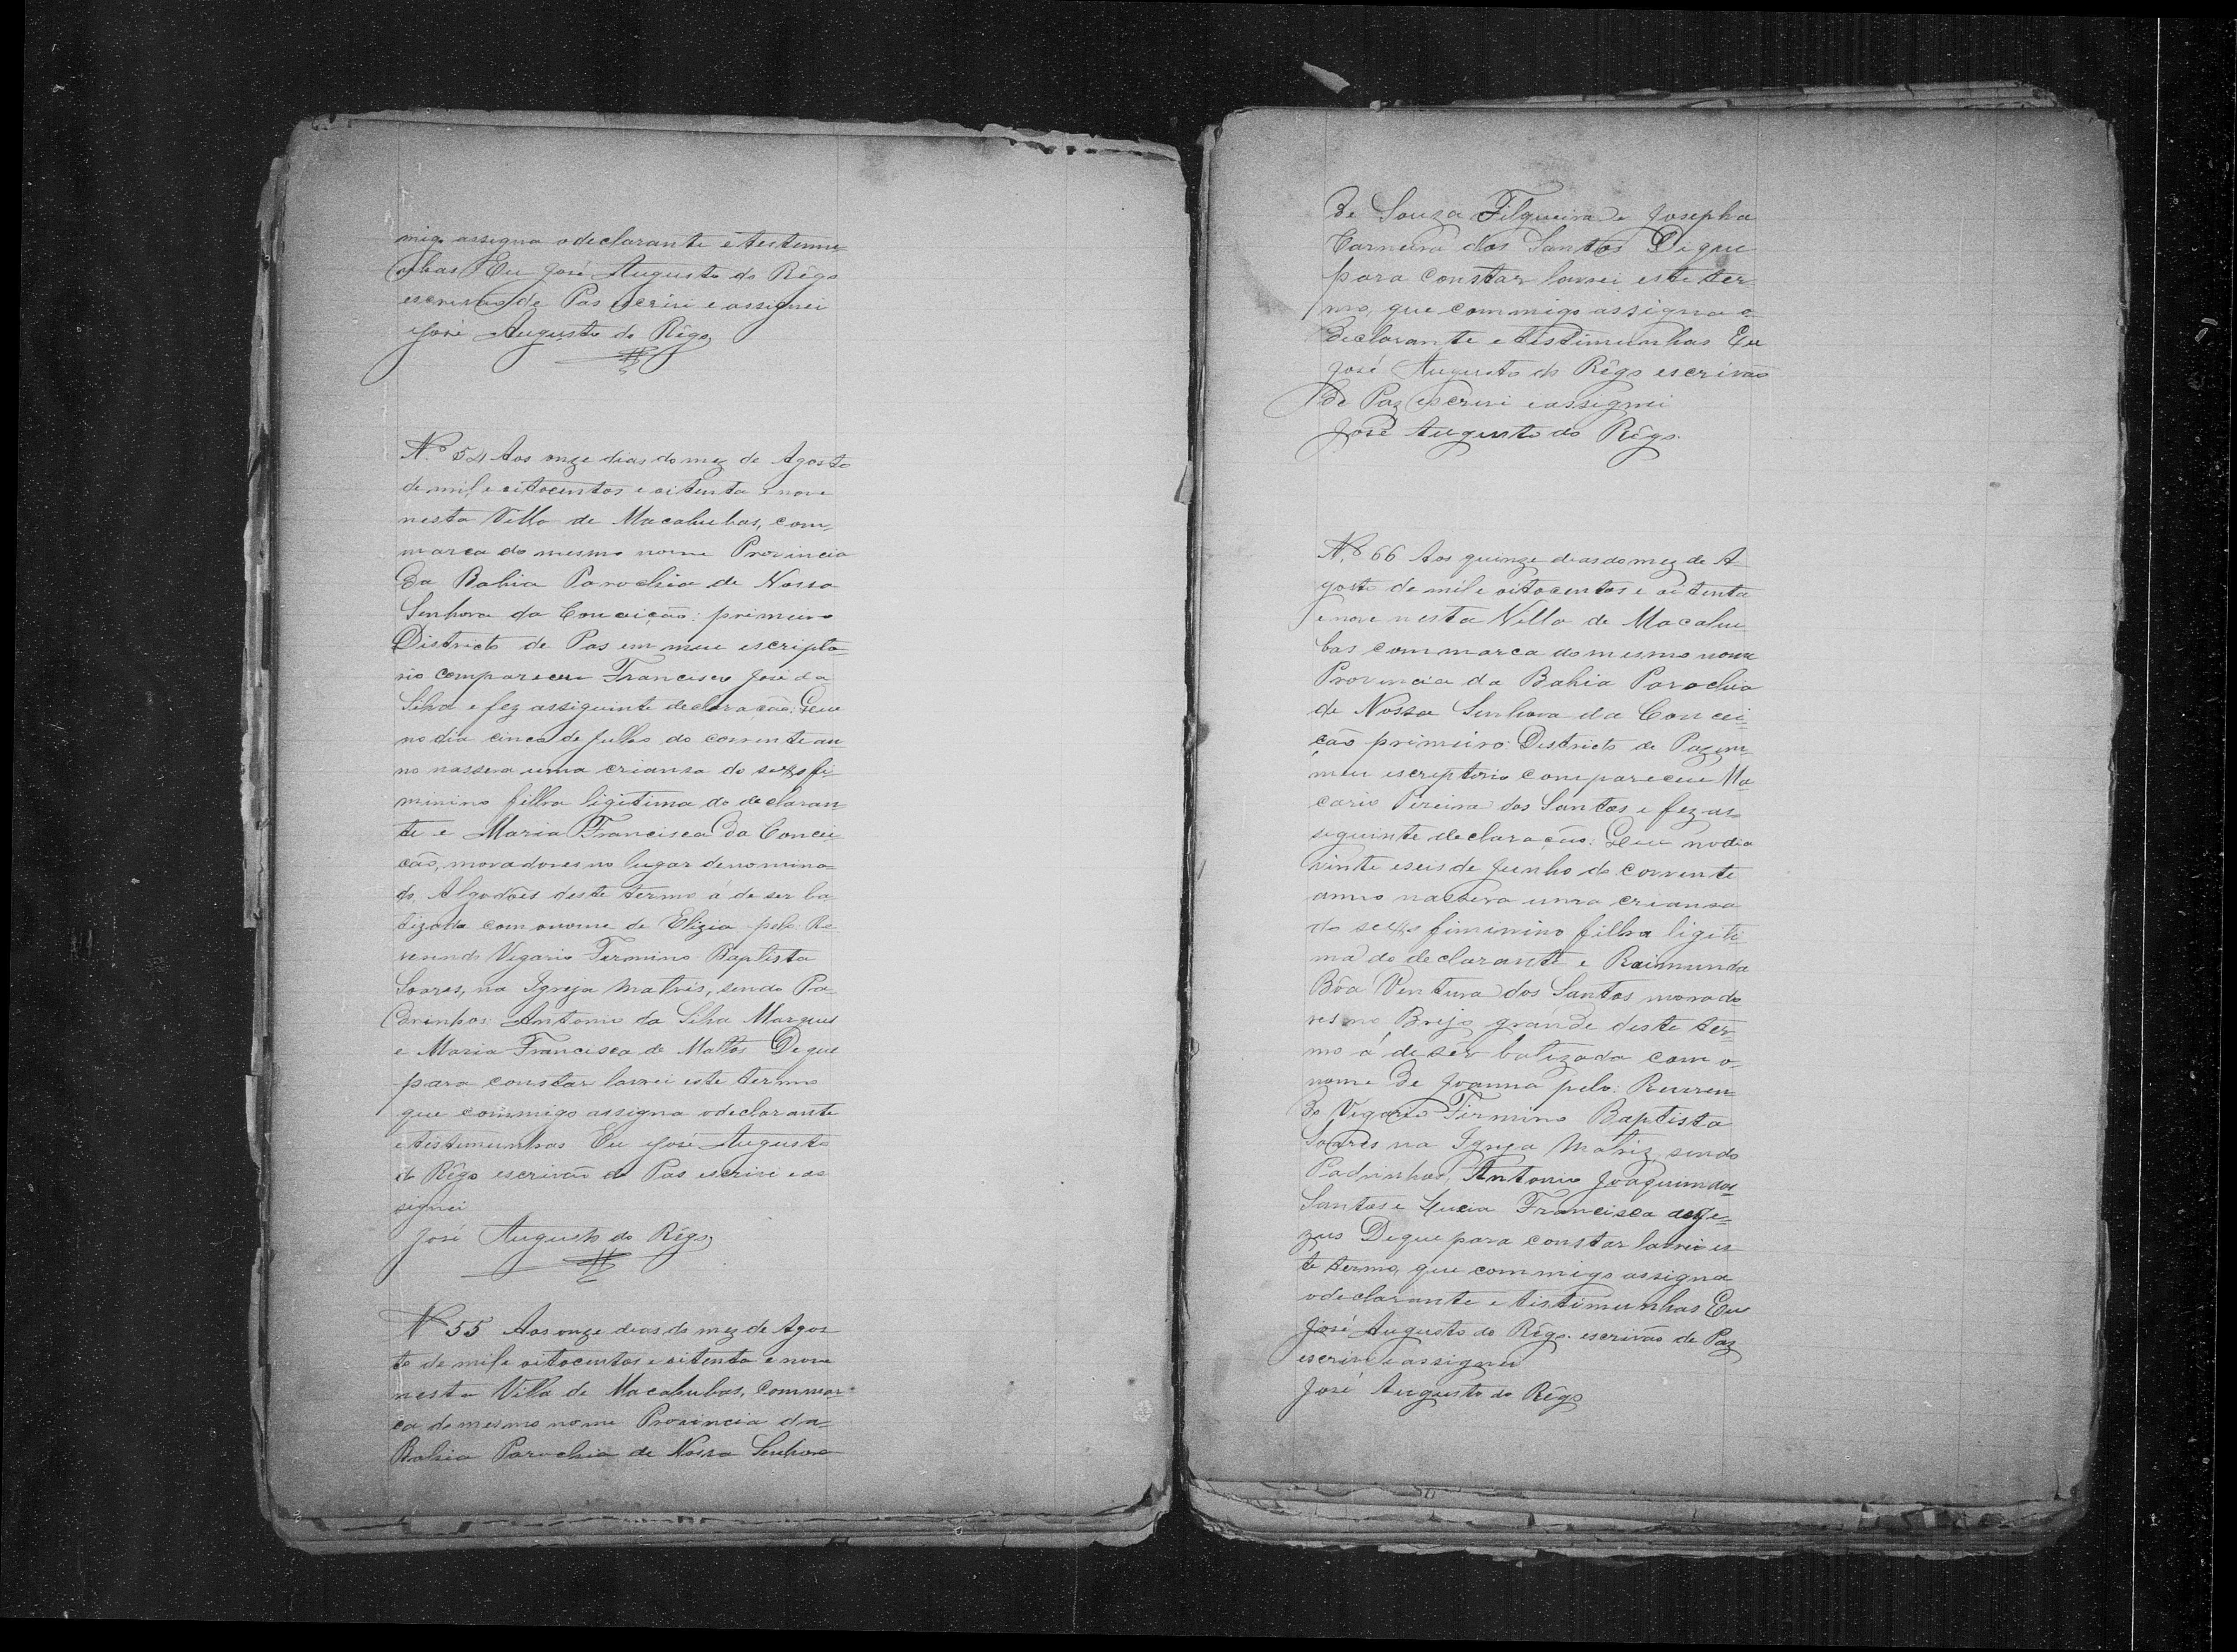 migo assigna o declarante e testemu=
nhas Eu José Augusto do Rêgo
escrivão de Pas escrivi e assignei
José Augusto do Rêgo
N.º 54 Aos onze dias do mez de Agosto
de mil e oitocentos e oitenta e nove
nesta Villa de Macahubas, com,
marca do mesmo nome Provincia
da Bahia Parochia de Nossa
Senhora da Conceição: primeiro
Districto de Pas em meu escripto=
rio compareceu Francisco José da
Silva e fez asseguinte declaração: Que
no dia cinco de Julho do corrente an=
no nassera uma criansa do sexo fi=
minino filha ligitima do declaran=
te e Maria Francisca da Concei=
ção, moradores no lugar denomina=
do Algodões deste termo á de ser ba=
tizada com o nome de Elizia pelo Re=
verendo Vigario Firmino Baptista
Soares, na Igreja Matris, sendo Pa=
drinhos Antonio da Silva Marques
e Maria Francisca de Mattos De que
para constar lavrei este termo
que commigo assigna o declarante
e tistimunhas Eu José Augusto
do Rêgo escrivão de Pas escrivi e as
signei
José Augusto do Rêgo
N 55 Aos onze dias do mez de Agos
to de mil e oitocentos e oitenta e nove
nesta Villa de Macahubas, commar=
ca do mesmo nome Provincia da=
Bahia Parochia de Nossa Senhora
de Souza Filgueira e Josepha
Carneiro dos Santos De que
para constar lavrei este ter
mo, que commigo assigna o
declarante e tistimunhas Eu
José Augusto do Rêgo escrivão
de Paz escrivi e assignei
José Augusto do Rêgo.
N.º 66 Aos quinze dias do mez de A
gosto de mil e oitocentos e oitenta
e nove nesta Villa de Macahu
bas commarca do mesmo nome
Provincia da Bahia Parochia
de Nossa Senhora da Concei=
ção primeiro: Districto de Paz em=
meu escriptorio compareceu Ma=
cario Vieira dos Santos e fez as=
seguinte declaração: Que no dia
vinte e seis de Junho do corrente
anno nassera uma criansa
do sexo fiminino filha ligiti
ma do declarante e Raimunda
Bôa Ventura dos Santos morado
res no Brejo grande deste ter=
mo á de sêr batizada com o=
nome de Joanna pelo: Reveren=
do Vigario Firmino Baptista
Soares na Igreja Matriz, sendo
Padrinhos, Antonio Joaquim dos
Santos e Lucia Francisca de Je=
zus De que para constar lavrei es
te termo, que commigo assigna
o declarante e tistimunhas Eu
José Augusto do Rêgo. escrivão de Paz
escrivi e assignei
José Augusto do Rêgo